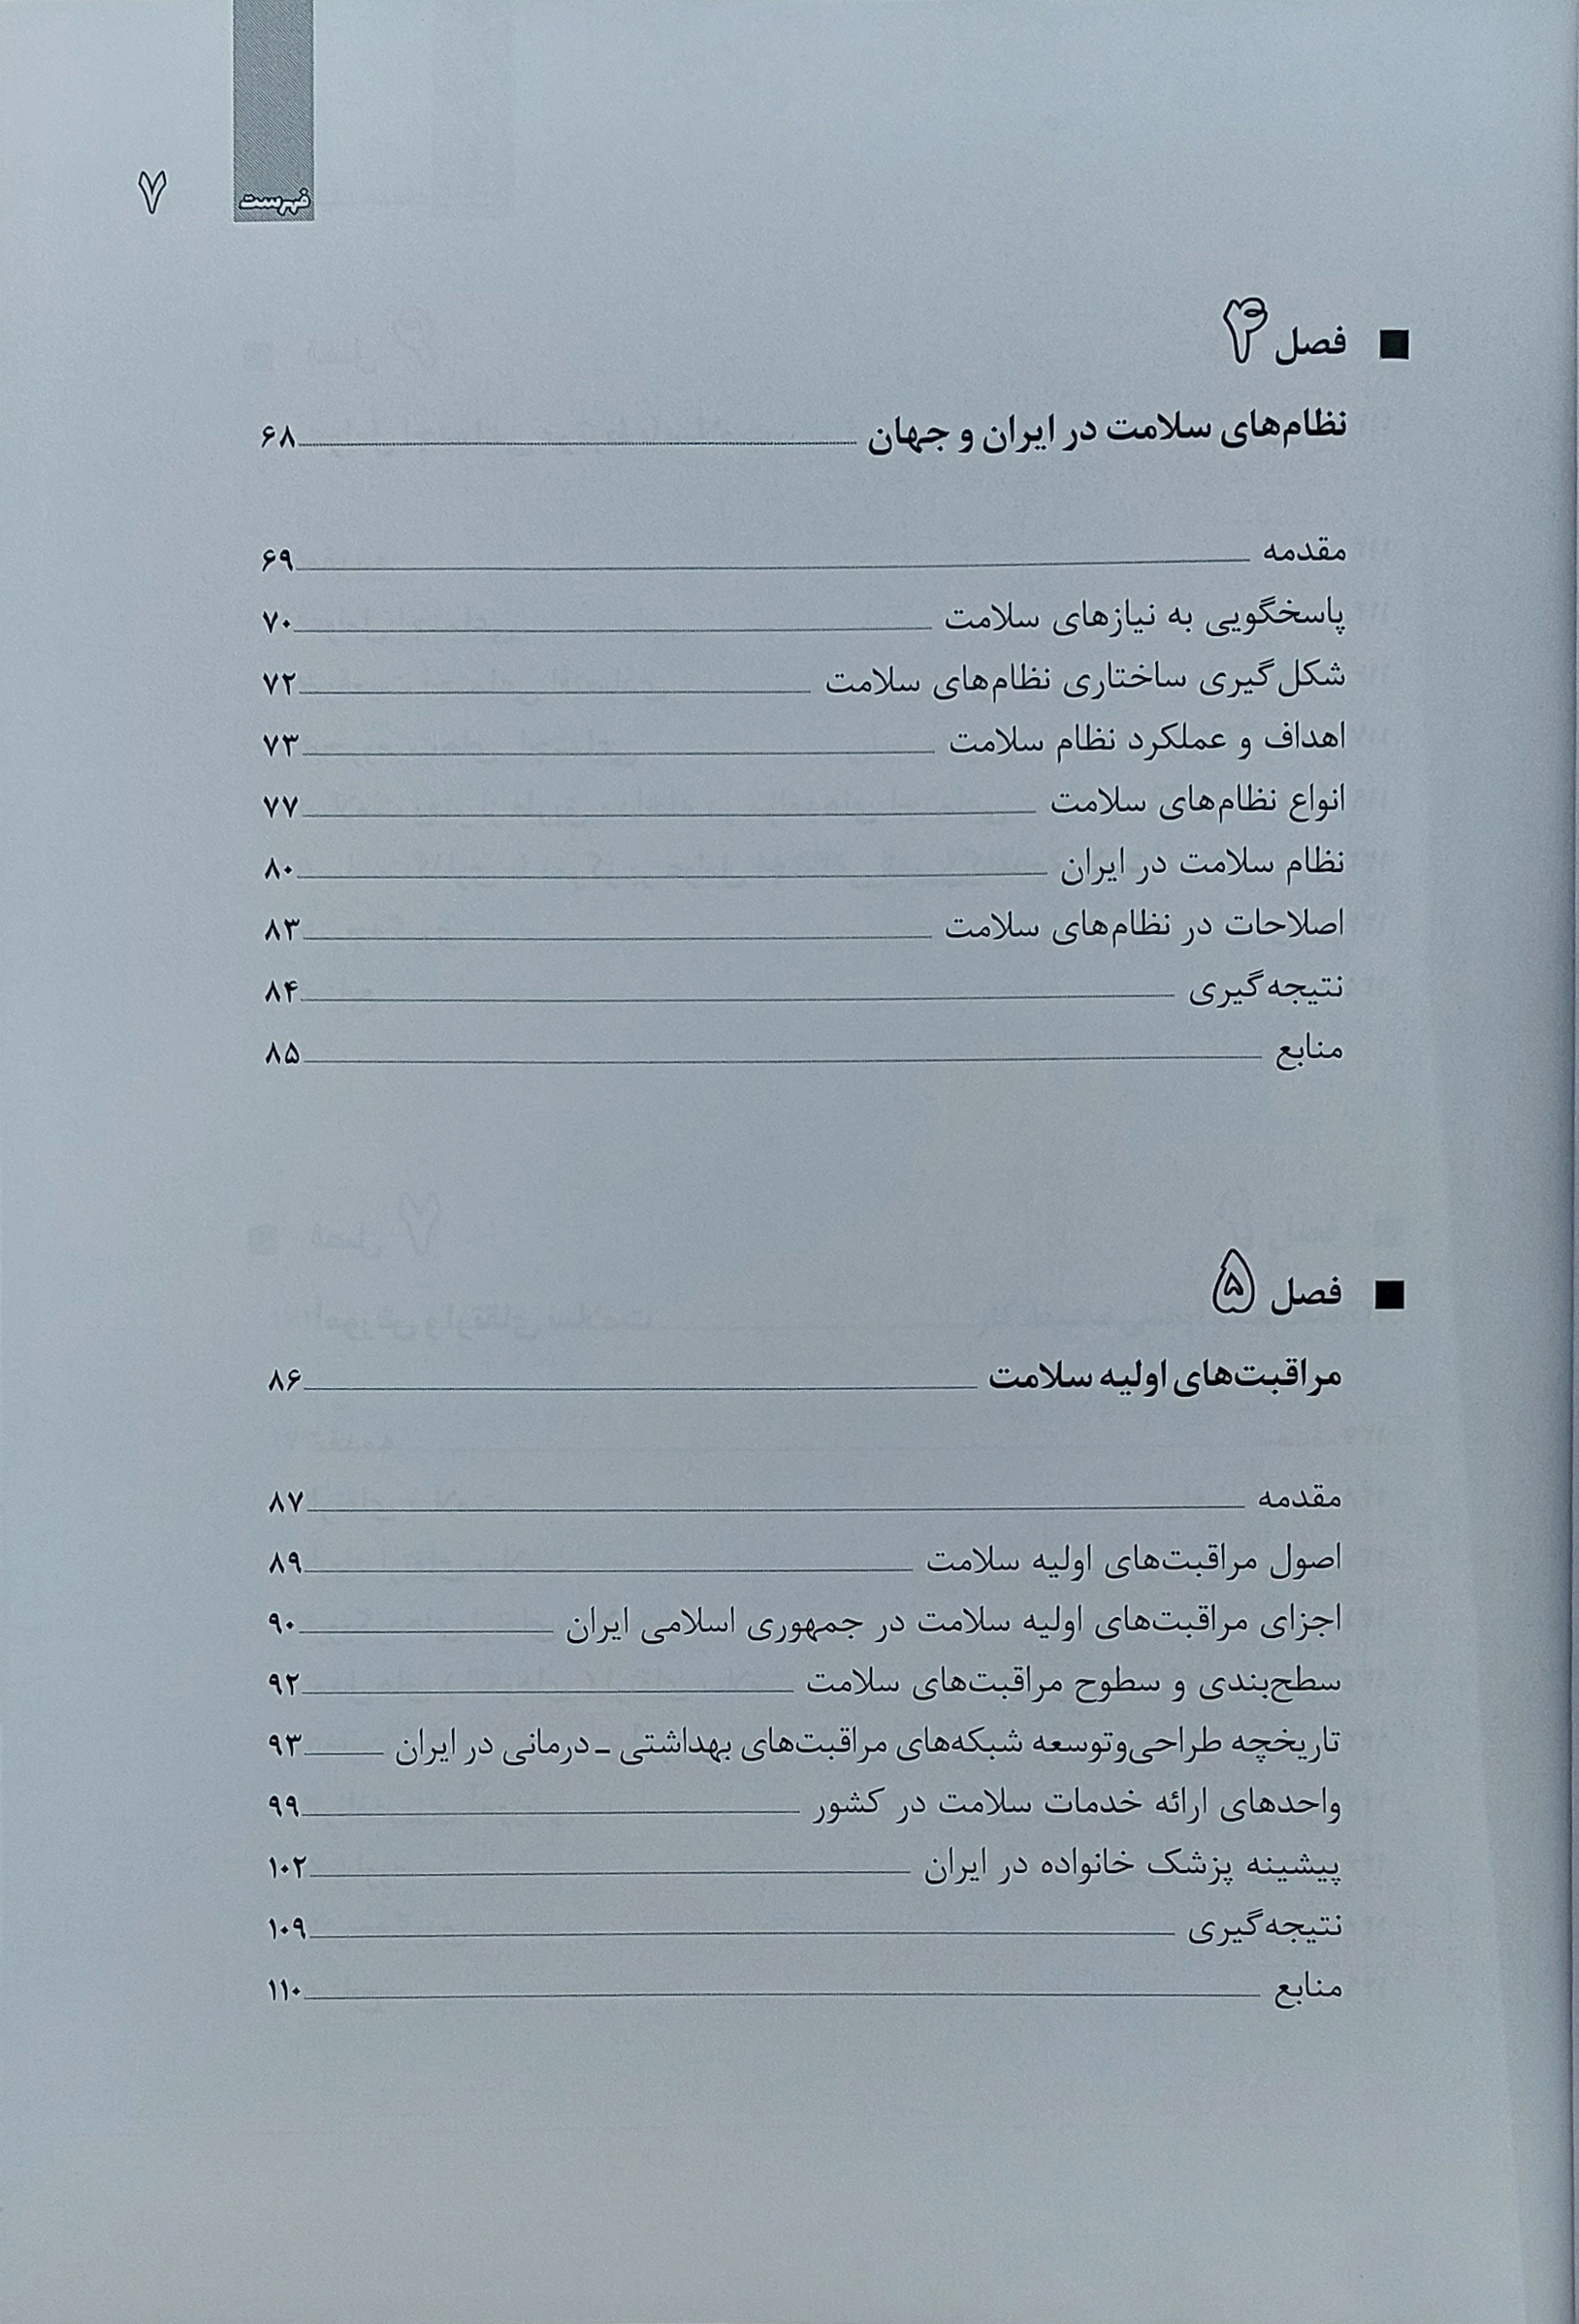 فهرست
۷
فصل ۴
نظام‌های سلامت در ایران و جهان ۶۸
مقدمه ۶۹
پاسخگویی به نیازهای سلامت ۷۰
شکل‌گیری ساختاری نظام‌های سلامت ۷۲
اهداف و عملکرد نظام سلامت ۷۳
انواع نظام‌های سلامت ۷۷
نظام سلامت در ایران ۸۰
اصلاحات در نظام‌های سلامت ۸۳
نتیجه‌گیری ۸۴
منابع ۸۵
فصل ۵
مراقبت‌های اولیه سلامت ۸۶
مقدمه ۸۷
اصول مراقبت‌های اولیه سلامت ۸۹
اجزای مراقبت‌های اولیه سلامت در جمهوری اسلامی ایران ۹۰
سطح‌بندی و سطوح مراقبت‌های سلامت ۹۲
تاریخچه طراحی‌وتوسعه شبکه‌های مراقبت‌های بهداشتی ـ درمانی در ایران ۹۳
واحدهای ارائه خدمات سلامت در کشور ۹۹
پیشینه پزشک خانواده در ایران ۱۰۲
نتیجه‌گیری ۱۰۹
منابع ۱۱۰